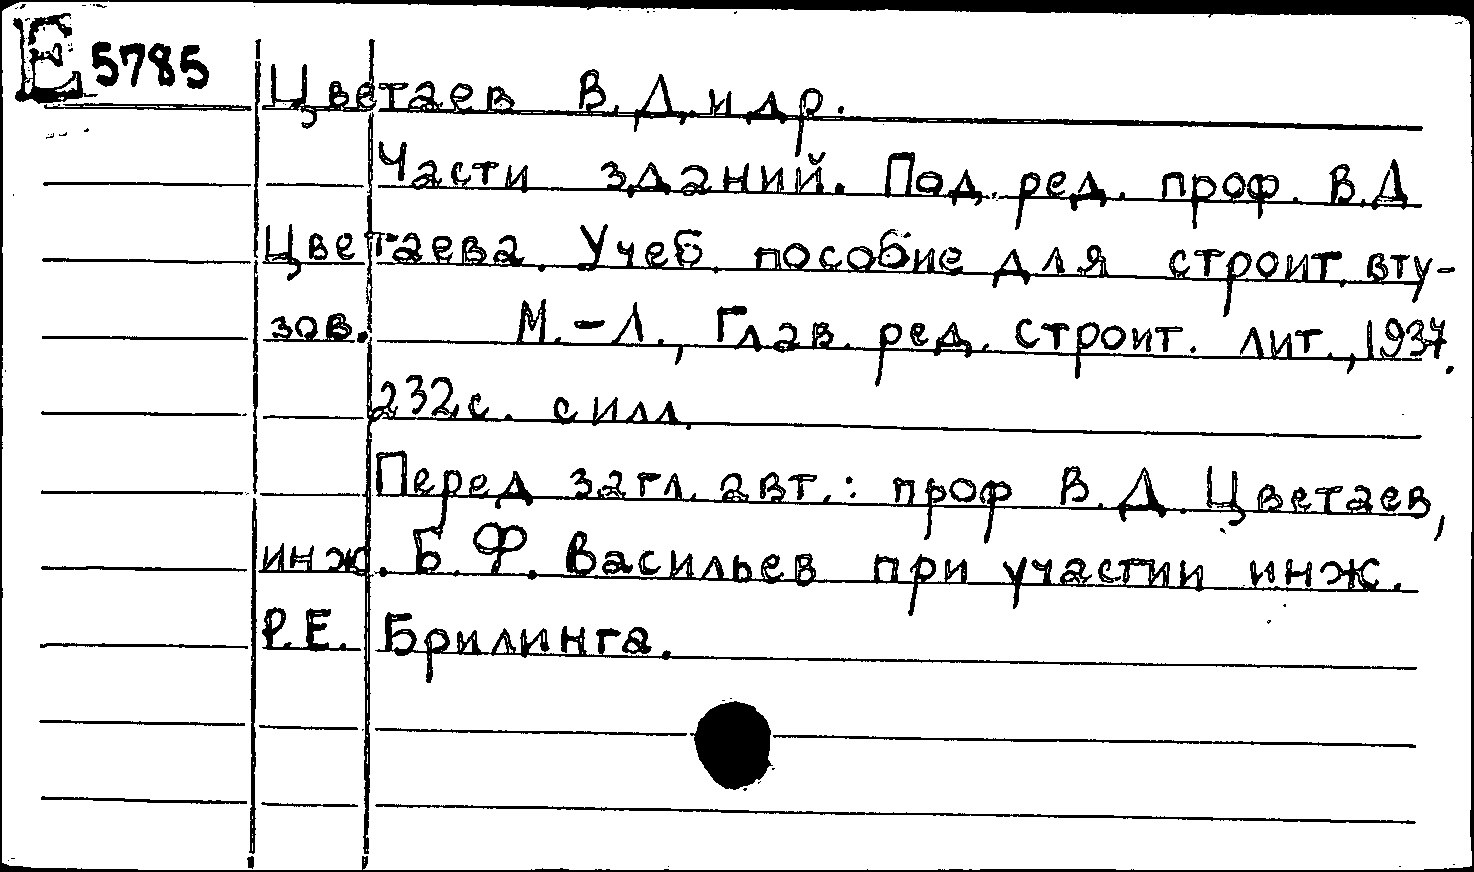 Е 5785
Цветаев В.Д. и др.
Части зданий. Под. ред. проф. В.Д
Цветаева. Учеб. пособие для строит. вту-
зов. М.-Л., Глав. ред. строит. лит., 1937.
232с. с илл.
Перед загл. авт.: проф В.Д. Цветаев,
инж. Б.Ф. Васильев при участии инж.
Р.Е. Брилинга.